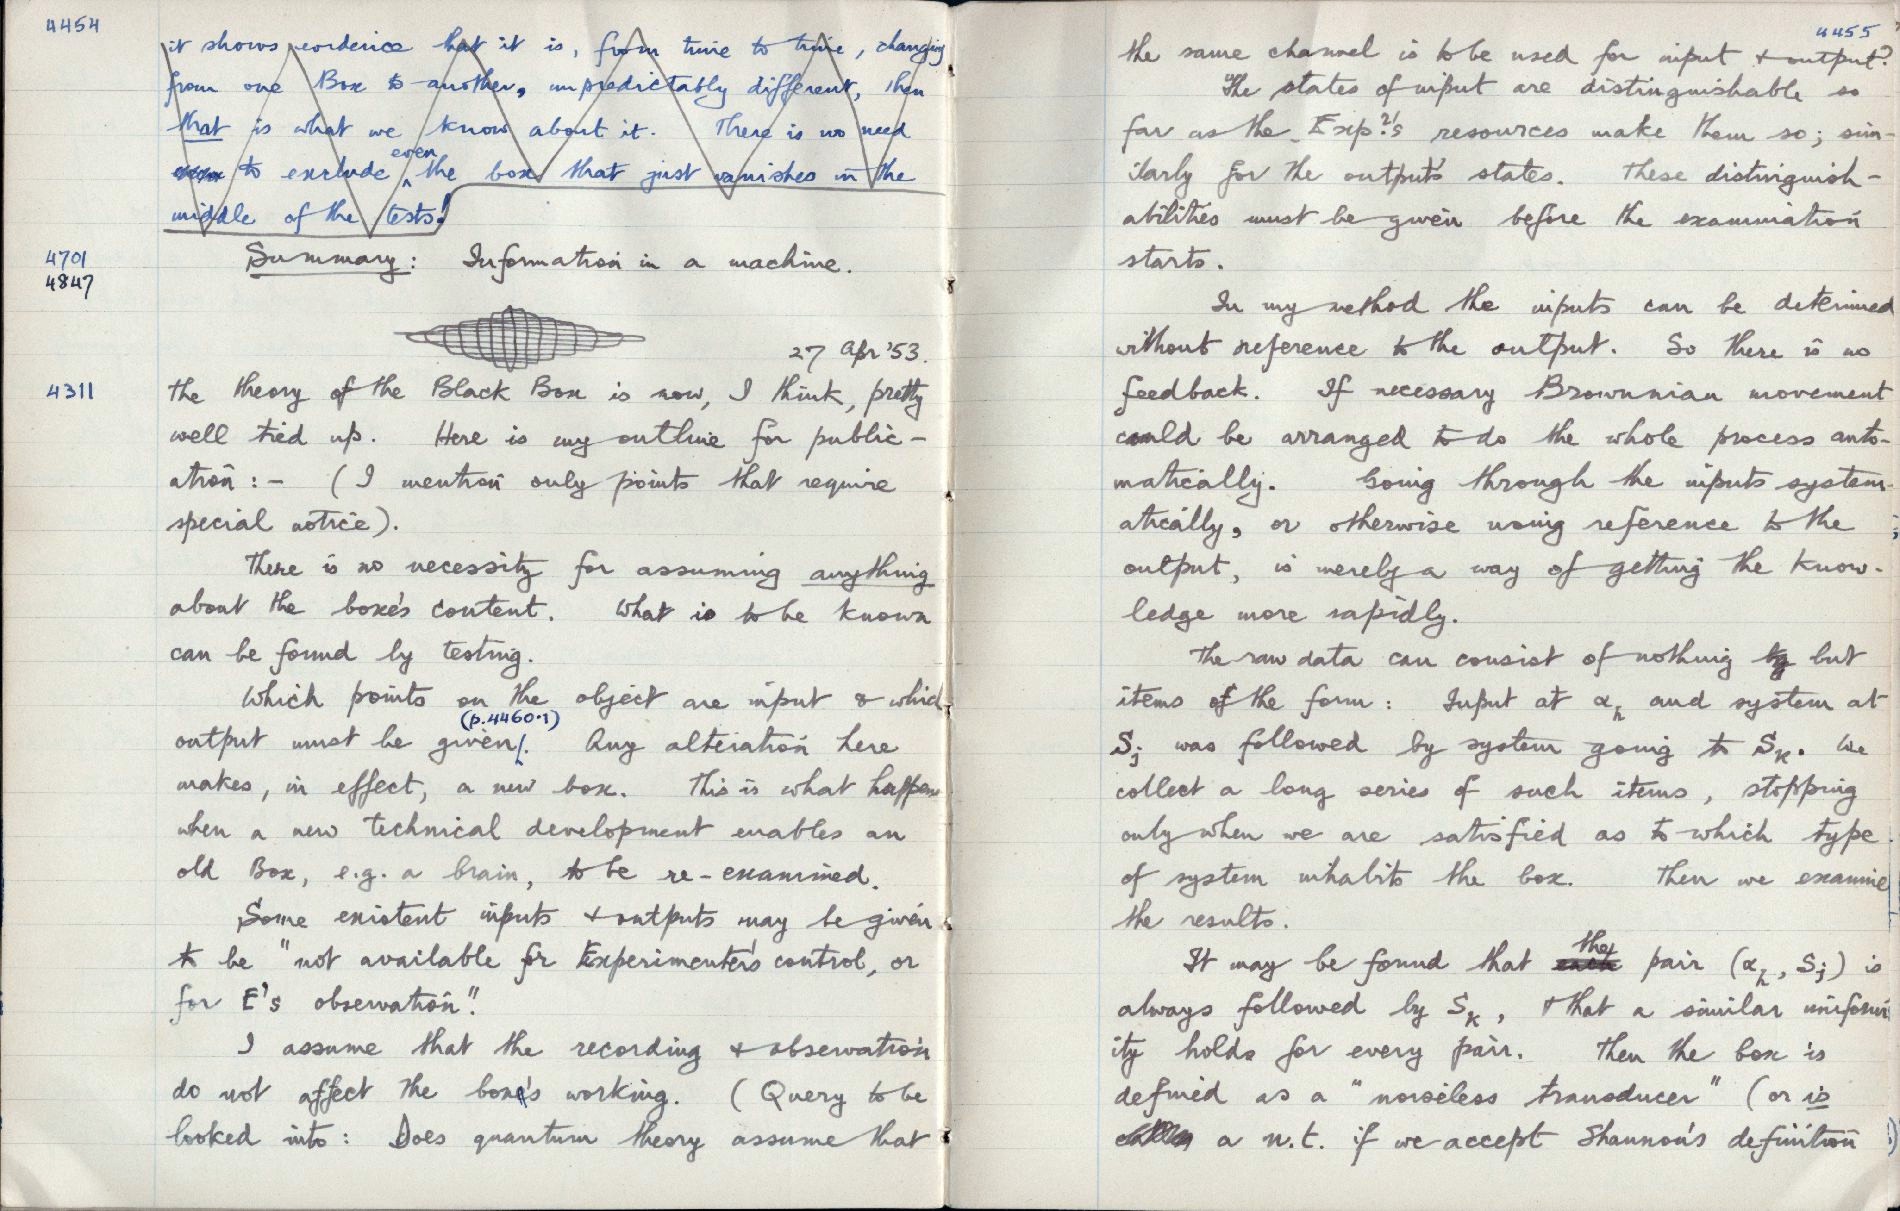 4454
it shows evidence that it is, from time to time, changing
from one Box to another, unpredictably different, then
that is what we know about it. There is no need
to exclude even the box that just vanishes in the
middle of the tests!
4701
4847
Summary: Information in a machine.
27 Apr '53.
4311
The theory of the Black Box is now, I think, pretty
well tied up. Here is my outline for public-
ation :- (I mention only points that require
special notice).
There is no necessity for assuming anything
about the boxe's content. What is to be known
can be found by testing.
Which points on the object are input & which
output must be given (p.4460.1). Any alteration here
makes, in effect, a new box. This is what happens
when a new technical development enables an
old Box, e.g. a brain, to be re-examined.
Some existent inputs & outputs may be given
to be "not available for Experimenter's control, or
for E's observation".
I assume that the recording & observation
do not affect the box's working. (Query to be
looked into: Does quantum theory assume that
4455
the same channel is to be used for input & output?
The states of input are distinguishable so
far as the Exp.r's resources make them so; sim-
ilarly for the outputs states. These distinguish-
abilities must be given before the examination
starts.
In my method the inputs can be determined
without reference to the output. So there is no
feedback. If necessary Brownnian movement
could be arranged to do the whole process auto-
matically. Going through the inputs system-
atically, or otherwise using reference to the
output, is merely a way of getting the know-
ledge more rapidly.
The raw data can consist of nothing but
items of the form: Input at αh and system at
Sj was followed by system going to Sk. We
collect a long series of such items, stopping
only when we are satisfied as to which type
of system inhabits the box. Then we examine
the results.
It may be found that the pair (αh, Sj) is
always followed by Sk, & that a similar uniform-
ity holds for every pair. Then the box is
defined as a "noiseless transducer" (or is
a n.t. if we accept Shannon's definition)